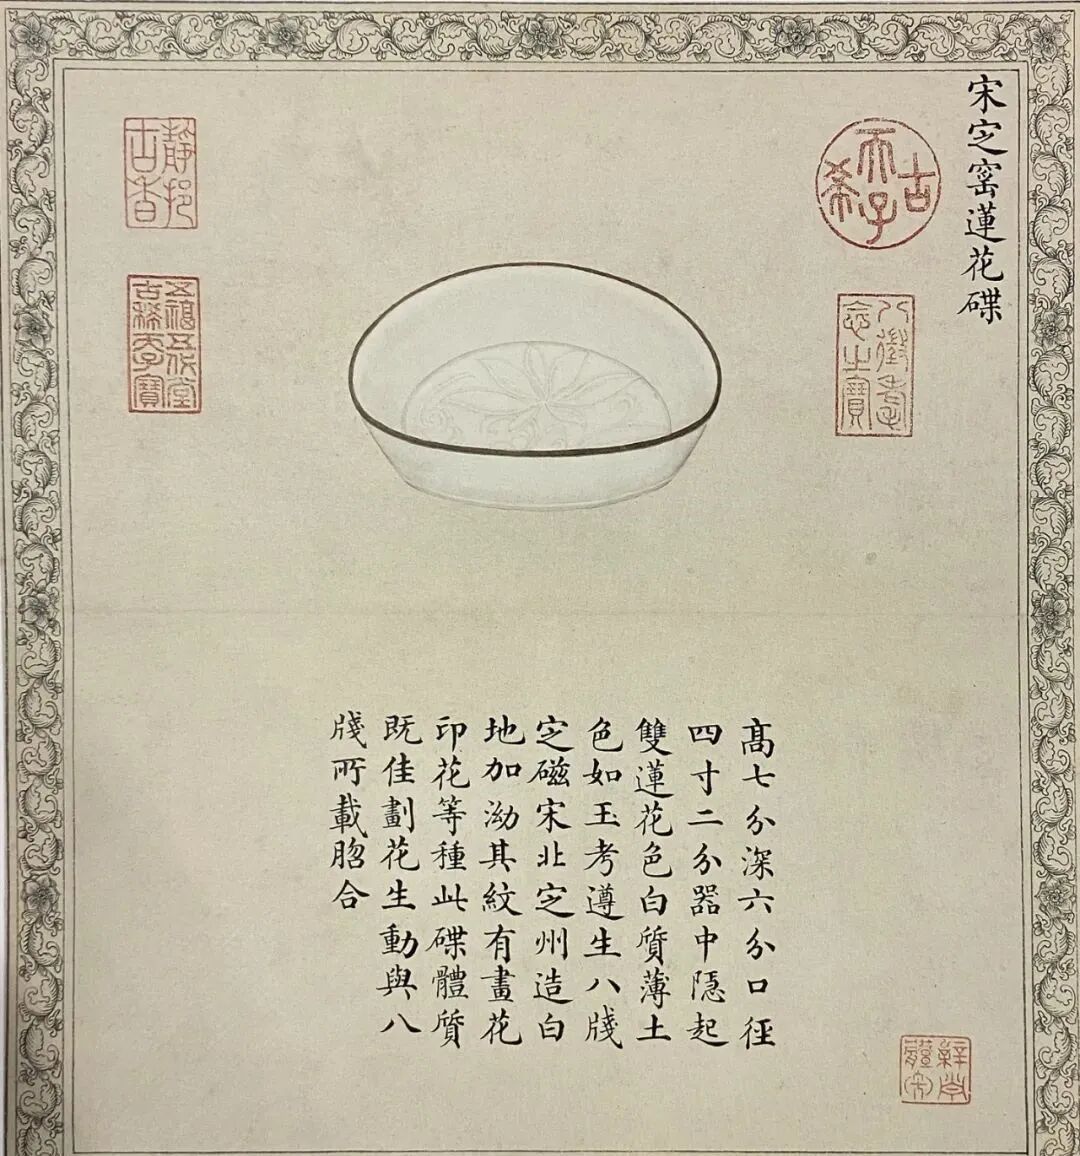 宋㝎窰蓮花碟
古稀天子
八徵耄念之寶
靜挹古香
五福五代堂古稀天子寶
髙七分深六分口徑
四寸二分器中隱起
雙蓮花色白質薄土
色如玉考遵生八牋
㝎磁宋北㝎州造白
地加泑其紋有畫花
印花等種此碟體質
既佳劃花生動與八
牋所載脗合